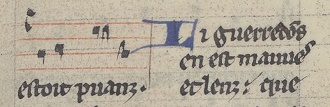 Li guerredõs
en est mauues
estoit pͥuanz. et lenz. que